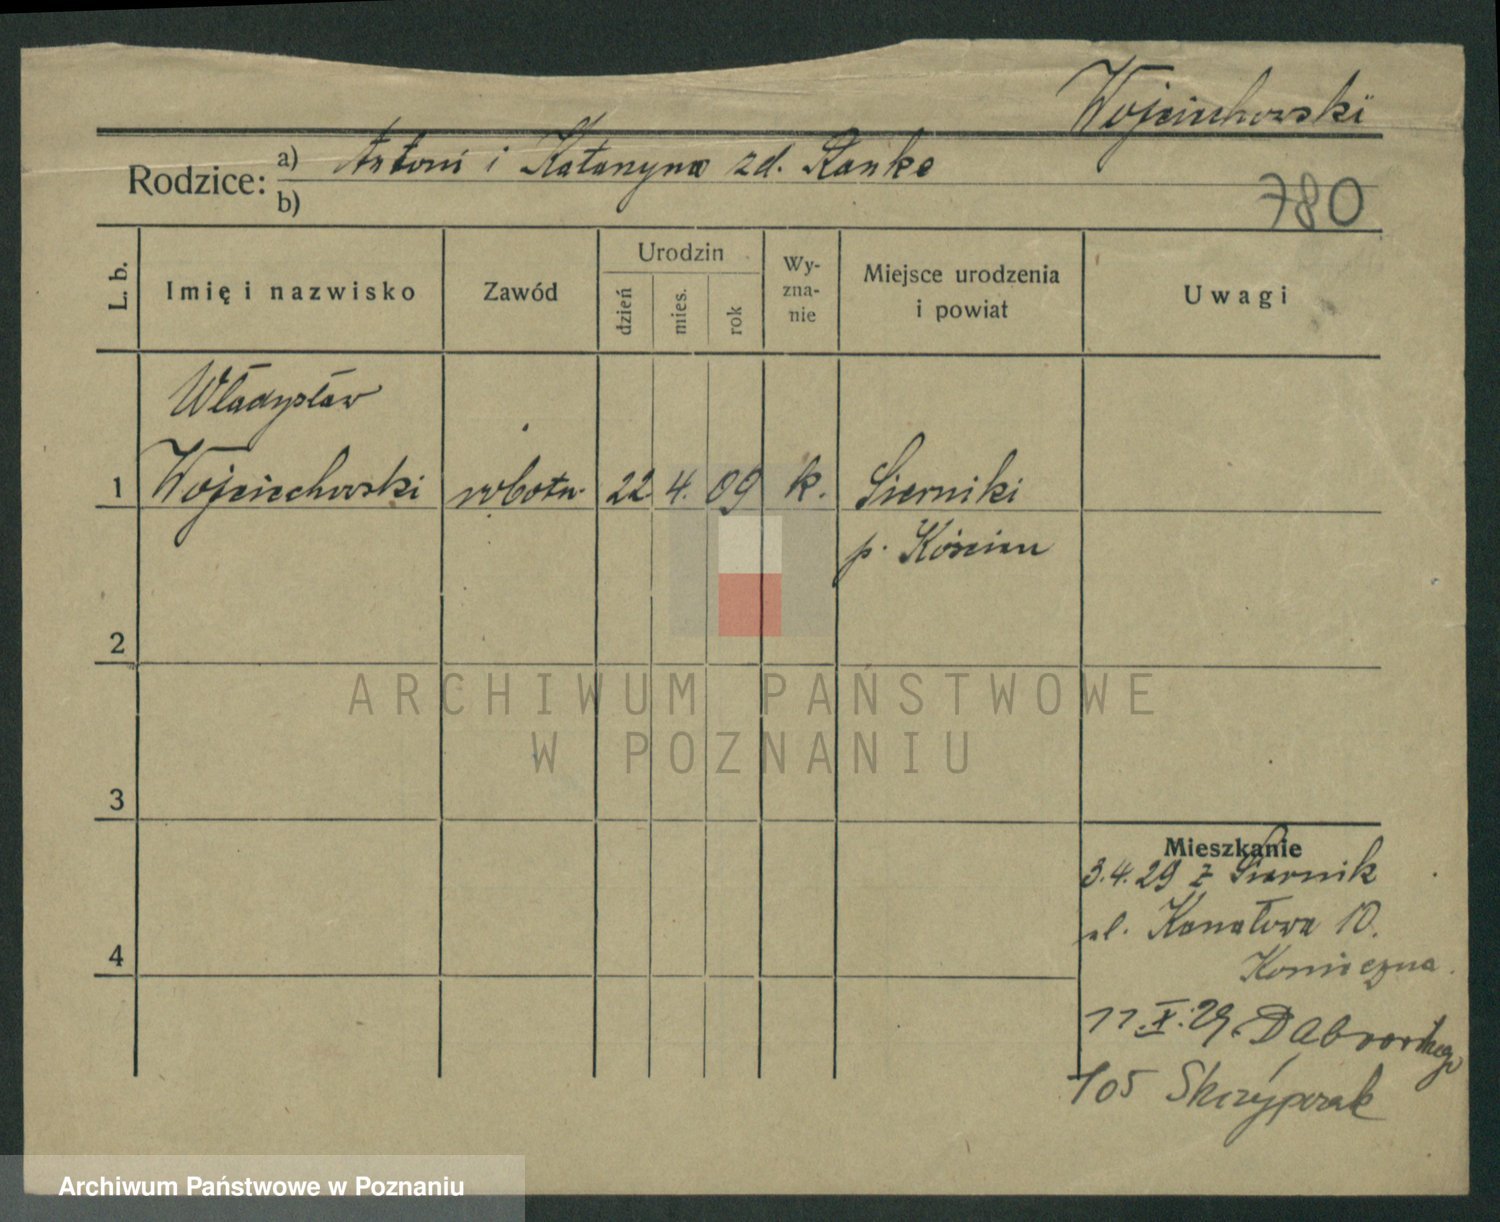 Wojciechowski
Rodzice: a) Antoni i Katarzyna zd. Ranke
b)
780
L. b. Imię i nazwisko Zawód Urodzin dzień mies. rok Wy-zna-nie Miejsce urodzenia i powiat Uwagi
Władysław
1 Wojciechowski robotn. 22 4. 09 k. Sierniki
p. Kościan
2
ARCHIWUM PAŃSTWOWE
W POZNANIU
3
Mieszkanie
3.4.29 z Siernik
ul. Kanałowa 10.
4
Konieczna.
11.X.29. Dąbrowskiego
105 Skrzypczak
Archiwum Państwowe w Poznaniu